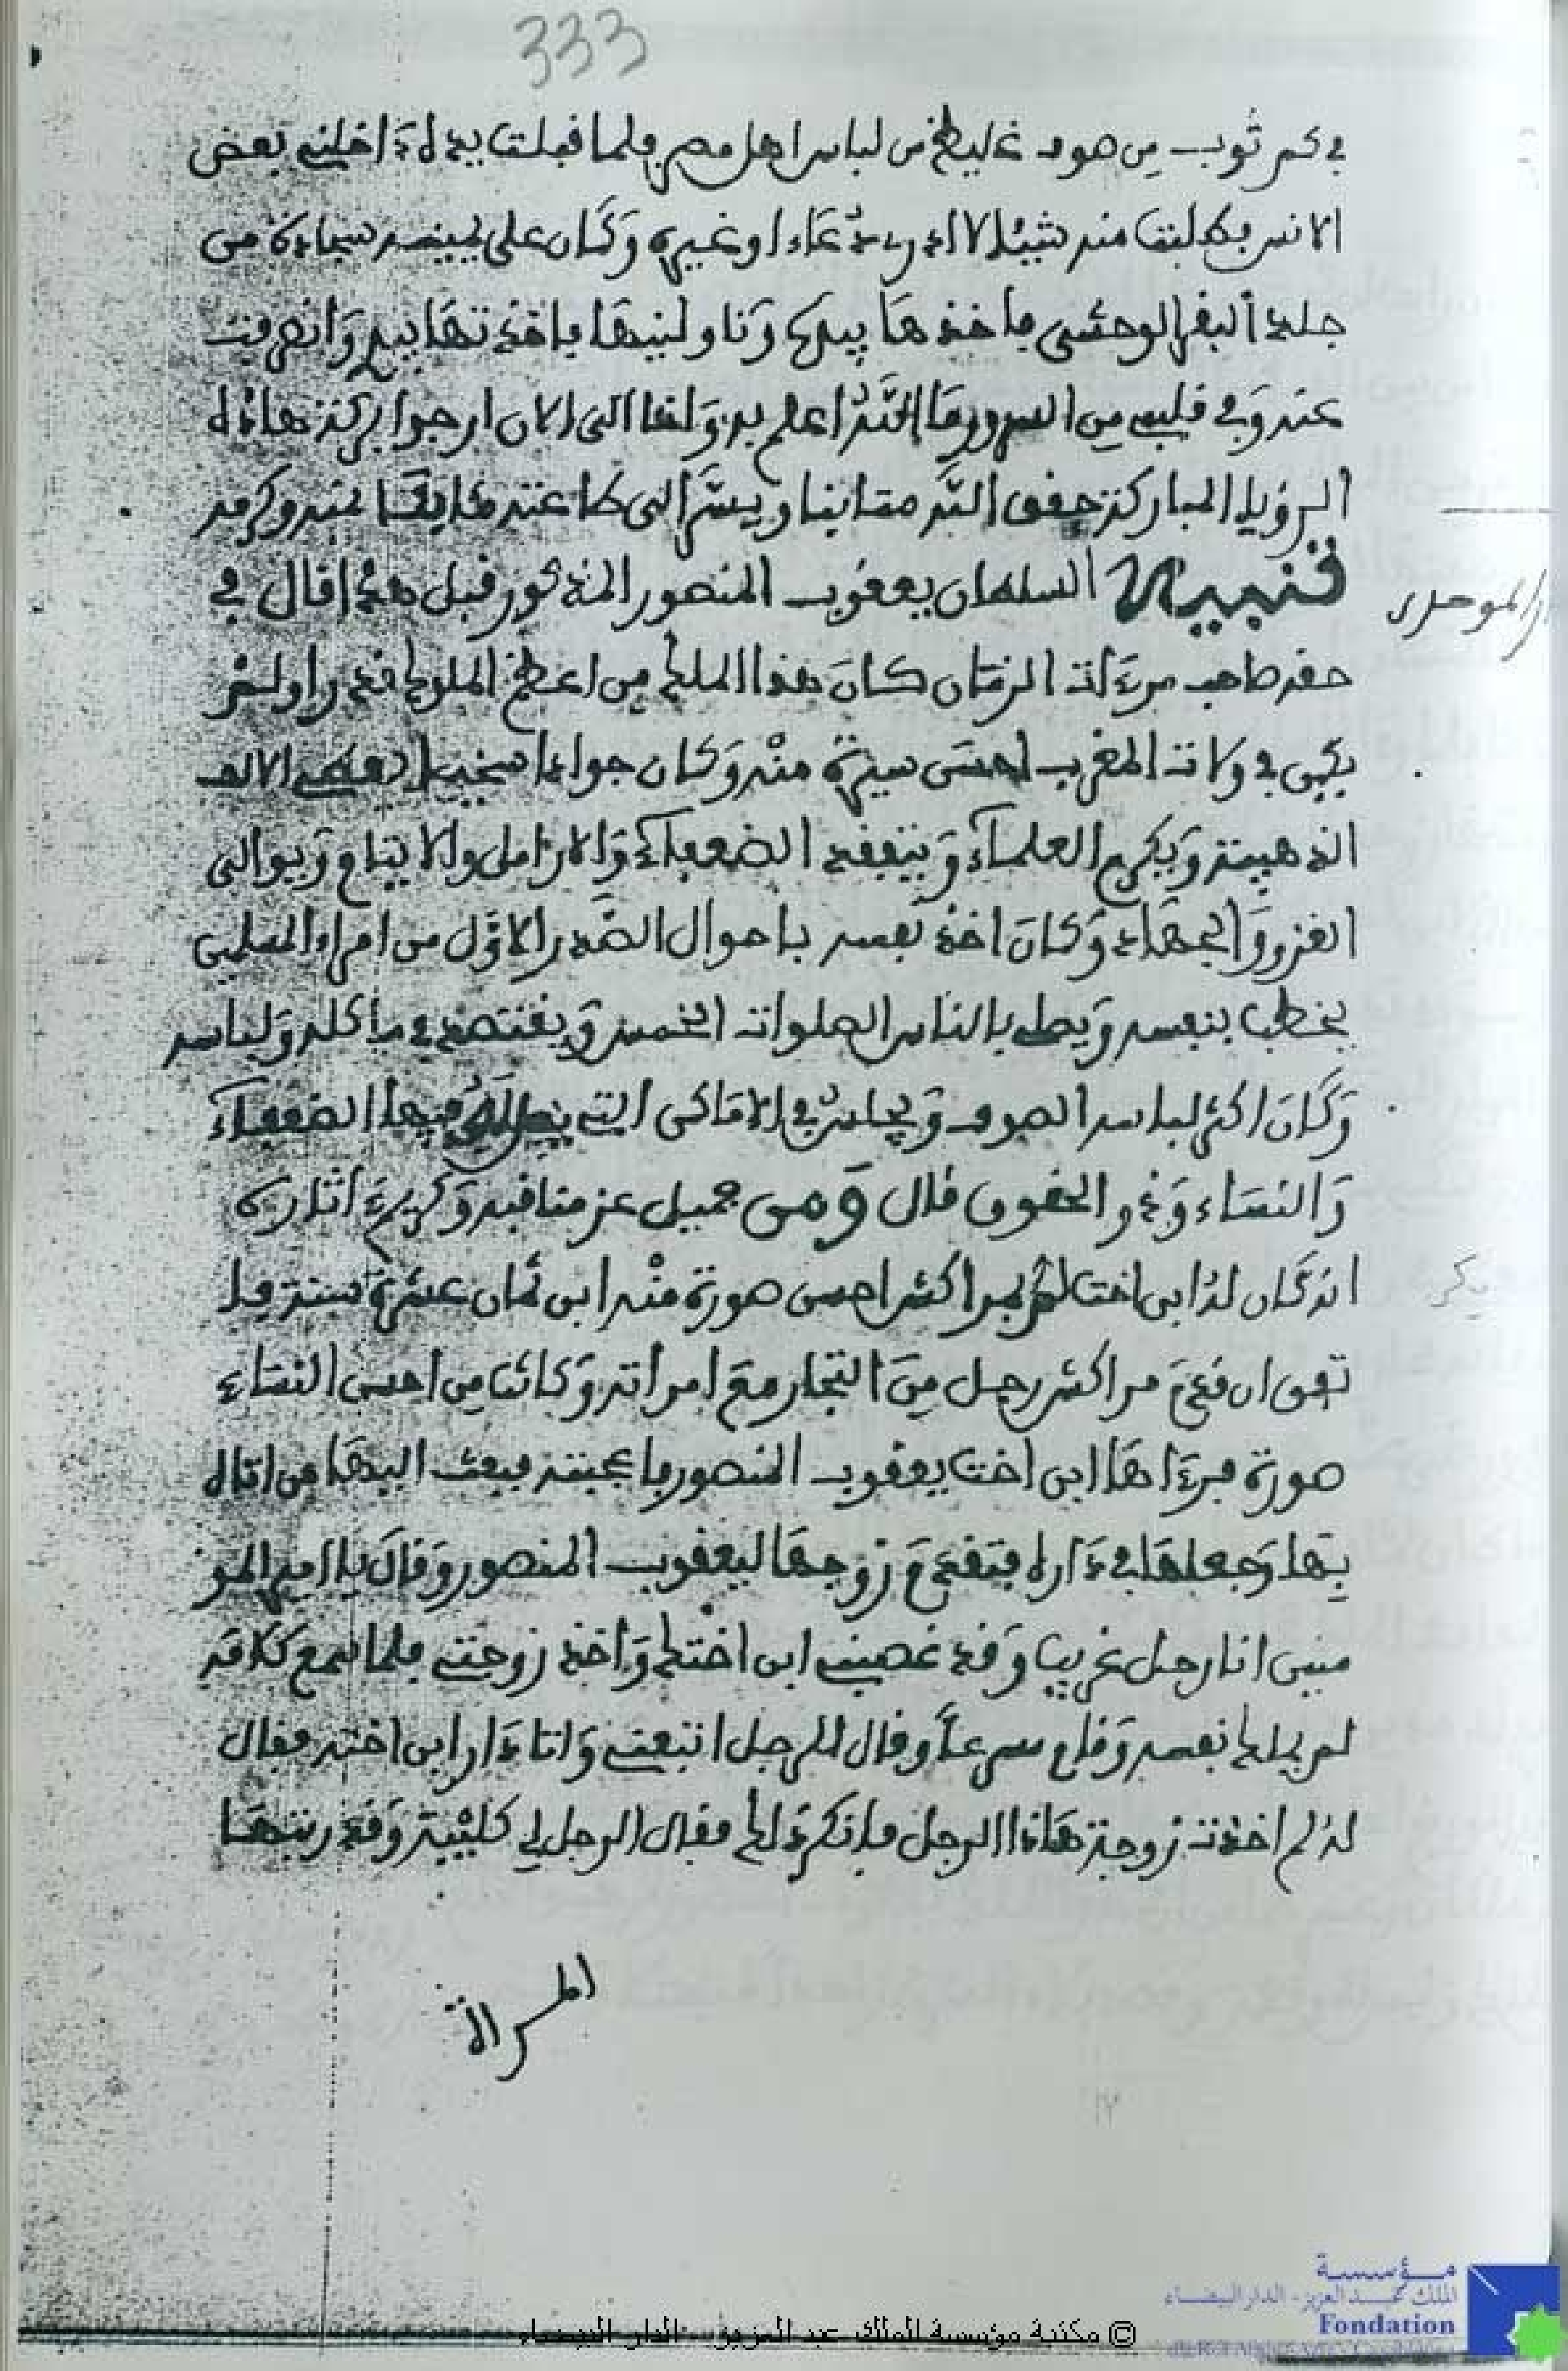 333
في كم ثوب من صوف غليظ من لباس اهل مصر فلما قبلت يده داخلني بعض
الانس فطلبت منه شيئا لا ادري دعاء او غيره وكان على يمينه سجادة من
جلد البقر الوحشي فاخذها بيده وناولنيها فاخذتها بيدي وانصرفت
عنه وفي قلبي من السرور ما الله اعلم به وانا الى الان ارجوا بركة هاذه
الرؤيا المباركة حقق الله متابنا ويسر الى طاعته بمنه وكرمه
تنبيه السلطان يعقوب المنصور المذكور قبل هذا قال في
حقه صاحب مرءات الزمان كان هذا الملك من اعظم الملوك قدرا ولم
يكن في ولات المغرب احسن سيرة منه وكان جوادا سخيا الالف
الذهبية ويكرم العلماء ويتفقد الضعفاء والارامل والايتام ويوالى
الغزو والجهاد وكان اخذ نفسه باحوال الصدر الاول من امراء المسلمين
يخطب بنفسه ويصلي بالناس الصلوات الخمس ويقتصد في مأكله ولباسه
وكان اكثر لباسه الصوف ويجلس في الاماكن التي يصل اليه فيها الضعفاء
والنساء وذو الحقوق قال ومن جميل عز مناقبه وكريم ءاثاره
انه كان له ابن اخت لم ير بمراكش احسن صورة منه ابن ثمان عشرة سنة فا
تفق ان قدم مراكش رجل من التجار مع امرأته وكانت من احسن النساء
صورة فرءاها ابن اخت يعقوب المنصور فاعجبته فبعث اليها من اتاه
بها وجعلها في داره فتقدم زوجها ليعقوب المنصور وقال يا امير المو
منين انا رجل غريب وقد غصبني ابن اختك واخذ زوجتي فلما سمع كلامه
لم يملك نفسه وقام مسرعا وقال للرجل اتبعني واتا دار ابن اخته فقال
له لم اخذت زوجة هاذا الرجل فانكر ذلك فقال الرجل لي كلبية وقد ربتها
المراة
الموحدي
يكن
© مكتبة مؤسسة الملك عبد العزيز - الدار البيضاء
مؤسسة
الملك عبد العزيز - الدار البيضاء
Fondation